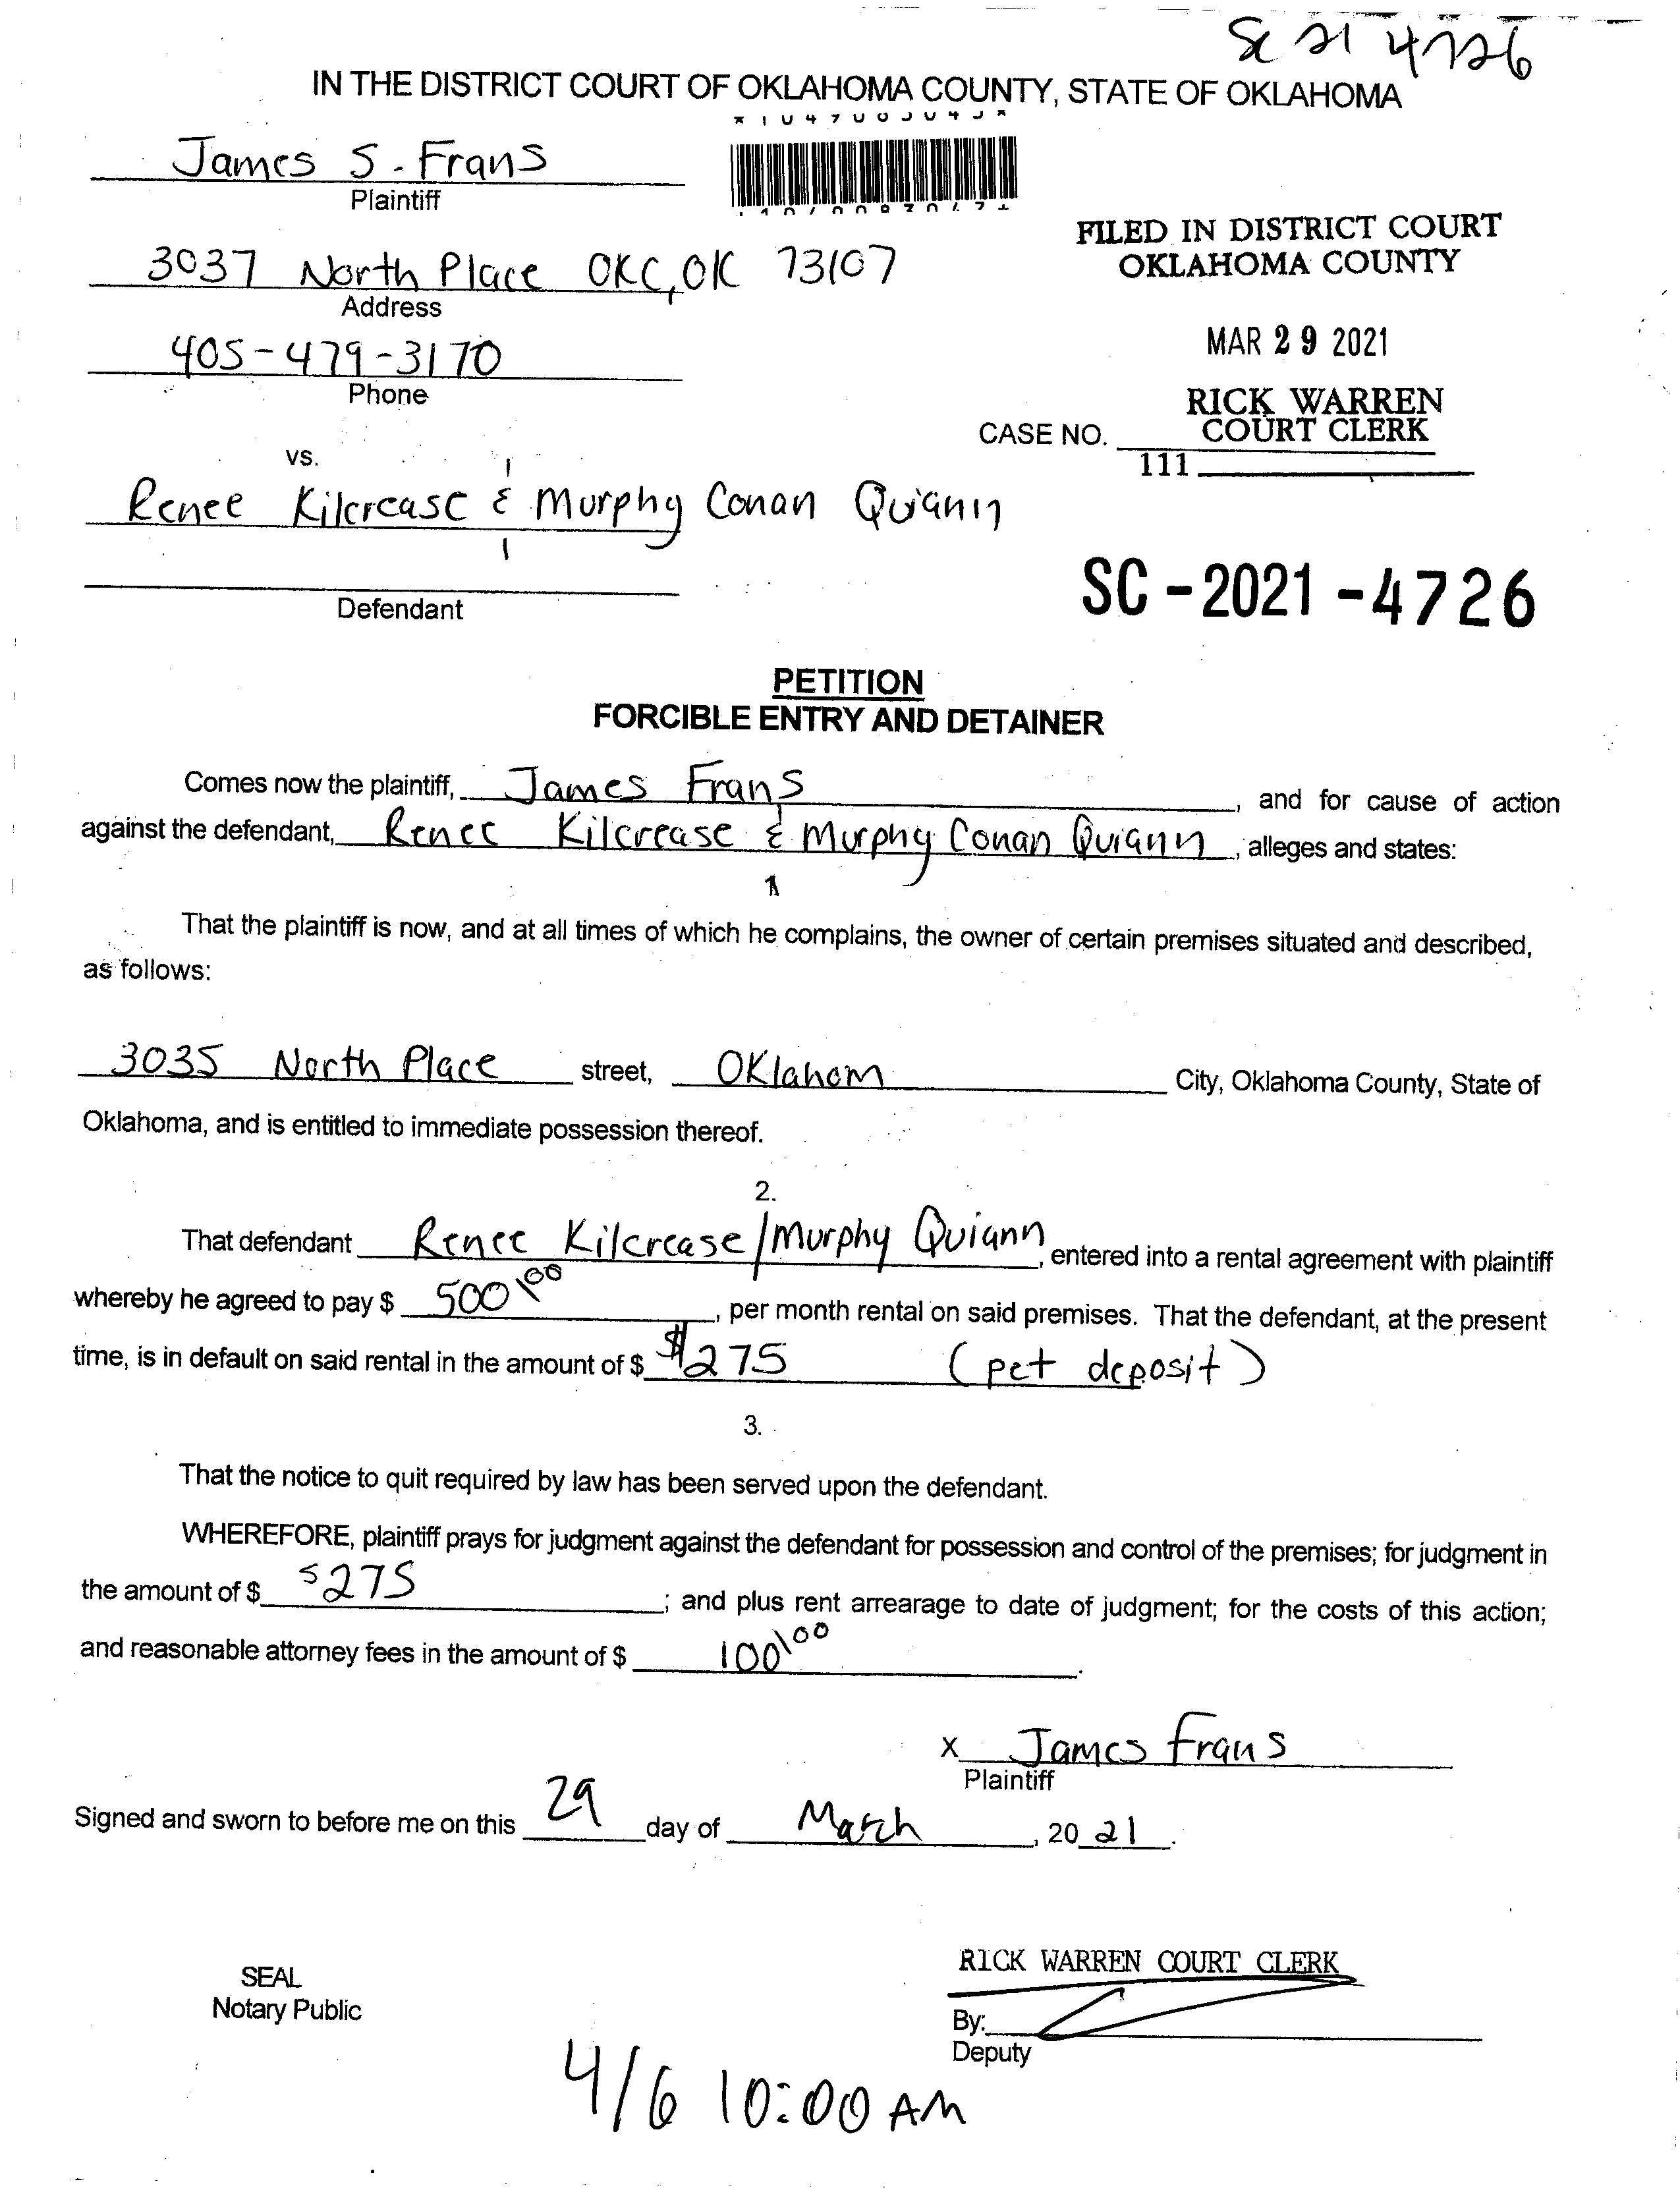 SC 21 4726
IN THE DISTRICT COURT OF OKLAHOMA COUNTY, STATE OF OKLAHOMA
James S. Frans
Plaintiff
3037 North Place OKC, OK 73107
Address
405-479-3170
Phone
FILED IN DISTRICT COURT
OKLAHOMA COUNTY
MAR 29 2021
RICK WARREN
COURT CLERK
CASE NO.
111
vs.
Renee Kilcrease & Murphy Conan Quiann
Defendant
SC-2021-4726
PETITION
FORCIBLE ENTRY AND DETAINER
Comes now the plaintiff, James Frans, and for cause of action
against the defendant, Renee Kilcrease & Murphy Conan Quiann, alleges and states:
1
That the plaintiff is now, and at all times of which he complains, the owner of certain premises situated and described,
as follows:
3035 North Place street, Oklahom City, Oklahoma County, State of
Oklahoma, and is entitled to immediate possession thereof.
2.
That defendant Renee Kilcrease/Murphy Quiann, entered into a rental agreement with plaintiff
whereby he agreed to pay $ 500\00, per month rental on said premises. That the defendant, at the present
time, is in default on said rental in the amount of $ $275 (pet deposit)
3.
That the notice to quit required by law has been served upon the defendant.
WHEREFORE, plaintiff prays for judgment against the defendant for possession and control of the premises; for judgment in
the amount of $ $275; and plus rent arrearage to date of judgment; for the costs of this action;
and reasonable attorney fees in the amount of $ 100\00.
x James Frans
Plaintiff
Signed and sworn to before me on this 29 day of March, 20 21.
RICK WARREN COURT CLERK
SEAL
Notary Public
By:
Deputy
4/6 10:00 AM